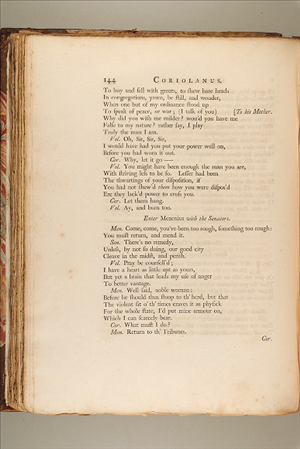 144 CORIOLANUS.
To buy and sell with groats, to shew bare heads
In congregations, yawn, be still, and wonder,
When one but of my ordinance stood up
To speak of peace, or war; (I talk of you) [To his Mother.
Why did you wish me milder? wou'd you have me
False to my nature? rather say, I play
Truly the man I am.
Vol. Oh, Sir, Sir, Sir,
I would have had you put your power well on,
Before you had worn it out.
Cor. Why, let it go —
Vol. You might have been enough the man you are,
With striving less to be so. Lesser had been
The thwartings of your disposition, if
You had not shew'd them how you were dispos'd
Ere they lack'd power to cross you.
Cor. Let them hang.
Vol. Ay, and burn too.
Enter Menenius with the Senators.
Men. Come, come, you've been too rough, something too rough:
You must return, and mend it.
Sen. There's no remedy,
Unless, by not so doing, our good city
Cleave in the midst, and perish.
Vol. Pray be counsell'd;
I have a heart as little apt as yours,
But yet a brain that leads my use of anger
To better vantage.
Men. Well said, noble woman:
Before he should thus stoop to th' herd, but that
The violent fit o' th' times craves it as physick
For the whole state, I'd put mine armour on,
Which I can scarcely bear.
Cor. What must I do?
Men. Return to th' Tribunes.
Cor.